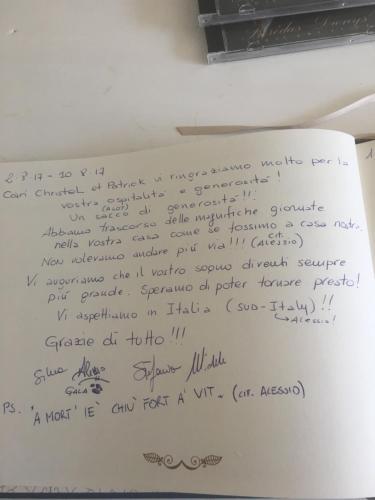 2.8.17 - 10.8.17
Cari Christel et Patrick vi ringraziamo molto per la
vostra ospitalità e generosità!
(ALOT)
Un sacco di generosità!!!
Abbiamo trascorso delle magnifiche giornate
nella vostra casa come se fossimo a casa nostra.
Non volevamo andare più via!!! (cit. ALESSIO)
Vi auguriamo che il vostro sogno diventi sempre
più grande. Speriamo di poter tornare presto!
Vi aspettiamo in Italia (SUD-Italy)!!
→ Alessio!
Grazie di tutto!!!
Silvia Alessio Stefania Michele
GALA
PS. "A MORT' IE' CHIU' FORT A' VIT. (cit. ALESSIO)